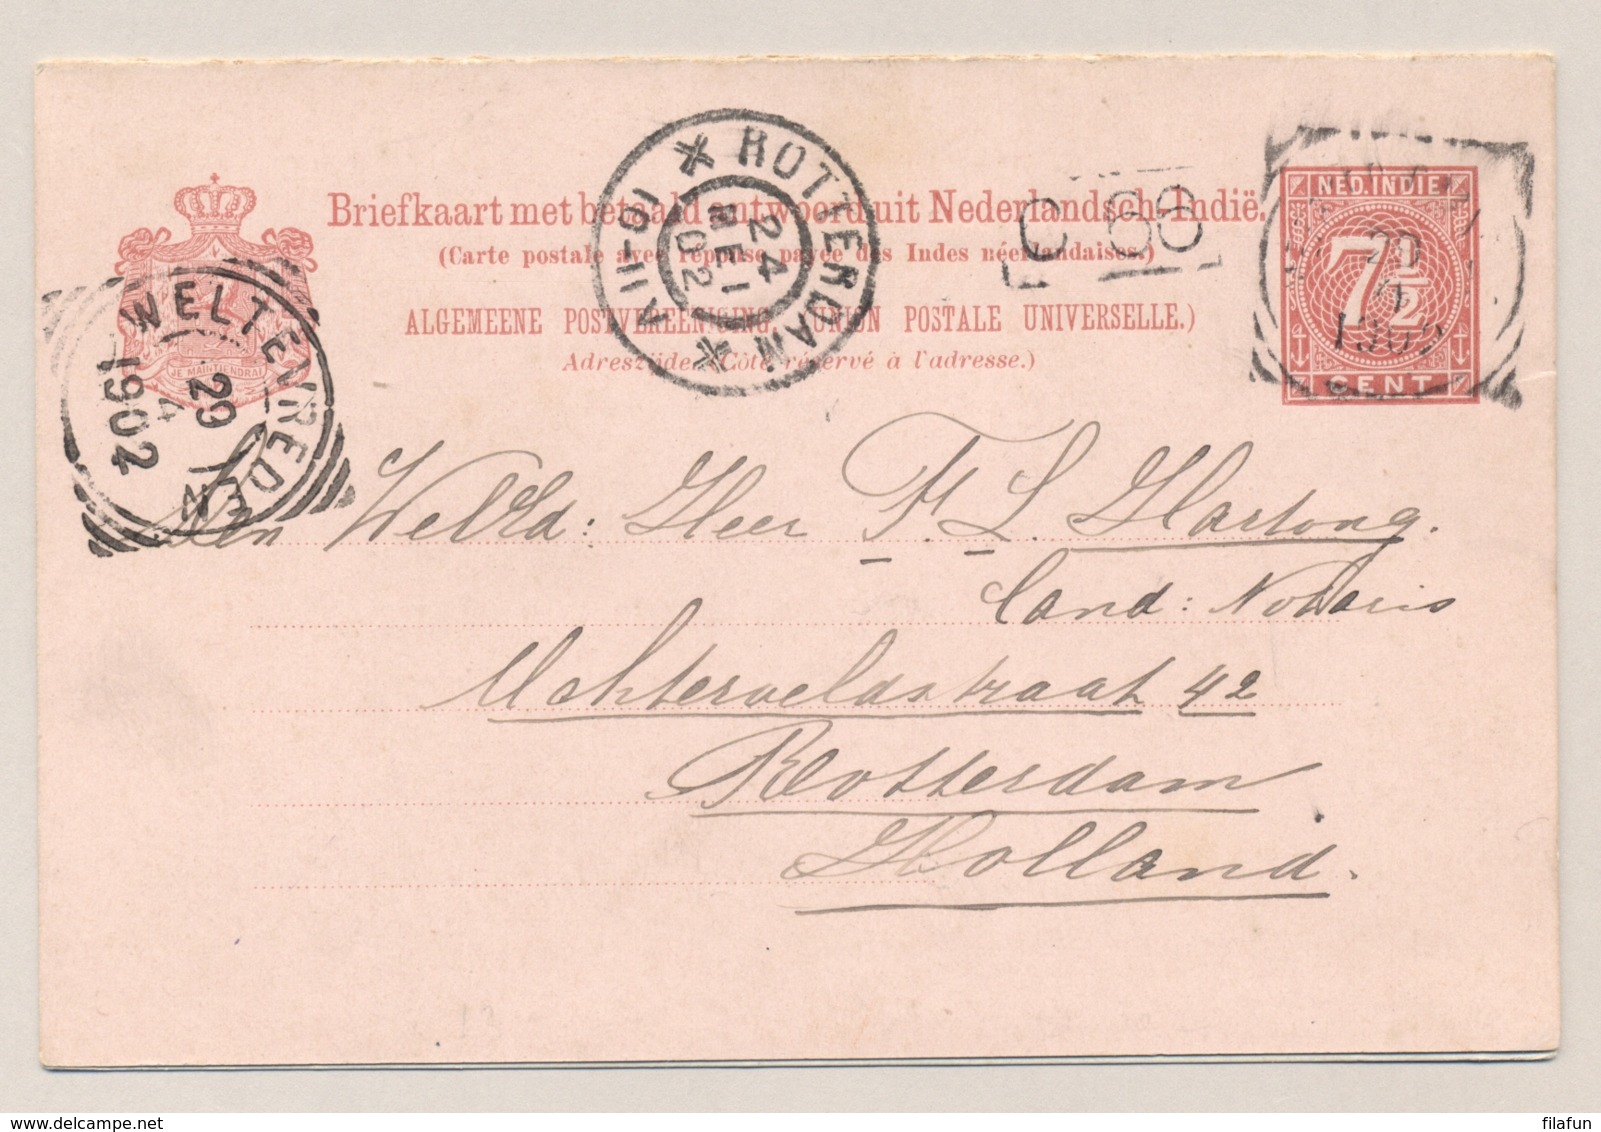 Briefkaart met betaald antwoord uit Nederlandsch-Indië.
(Carte postale avec réponse payée des Indes néerlandaises.)
ALGEMEENE POSTVEREENIGING (UNION POSTALE UNIVERSELLE.)
Adreszijde. (Côté réservé à l'adresse.)
JE MAINTIENDRAI
NED. INDIE
7½
CENT
20
1902
C 66
ROTTERDAM
24
MEI
02
10-11V
WELTEVREDEN
29
4
1902
Den WelEd: Heer F L Hartong.
Cand: Notaris
Achterveldstraat 42
Rotterdam
Holland.
filafun